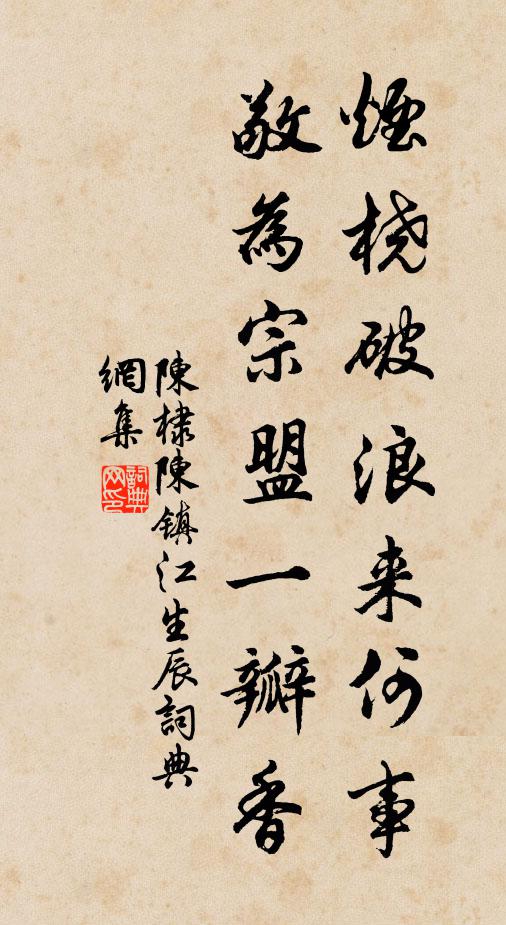 煙桡破浪来何事
敬為宗盟一瓣香
陳棣陳鎮江生辰詞典
網集
詞典
网印